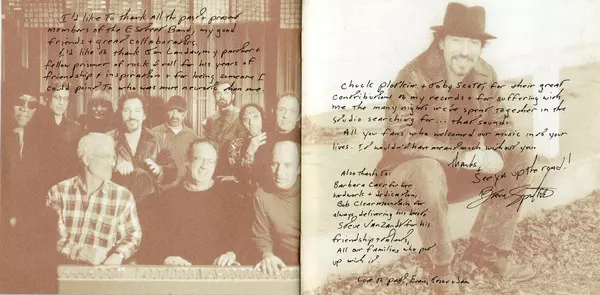 I'd like to thank all the past + present
members of the E Street Band, my good
friends + great collaborators.
I'd like to thank Jon Landau my partner +
fellow prisoner of rock + roll for his years of
friendship + inspiration + for being someone I
could point to who was more neurotic than me.
Chuck Plotkin + Toby Scott for their great
contributions to my records + for suffering with
me the many nights we've spent together in the
studio searching for... "that" sound.
All you fans who welcomed our music into your
lives. It wouldn't have meant much without you.
Thanks,
See ya up the road!!
Bruce Springsteen
Also thanks to:
Barbara Carr for her
hardwork + dedication,
Bob Clearmountain for
always delivering his best
Steve Van Zandt for his
friendship + talents,
All our families who put
up with it
Love to Patti, Evan, Jesse + Sam